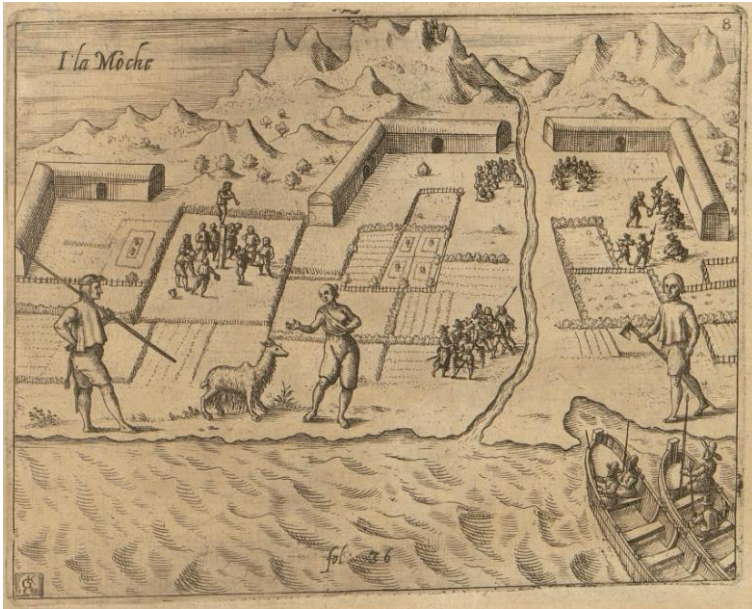 I la Moche
8
fol: 36